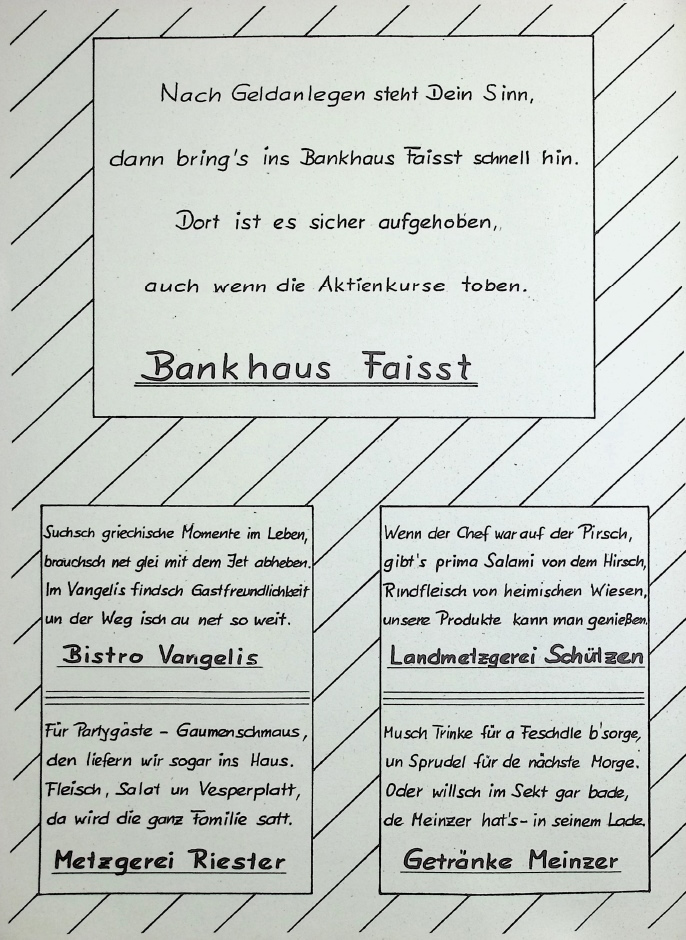 Nach Geldanlegen steht Dein Sinn,
dann bring's ins Bankhaus Faisst schnell hin.
Dort ist es sicher aufgehoben,
auch wenn die Aktienkurse toben.
Bankhaus Faisst
Suchsch griechische Momente im Leben,
brauchsch net glei mit dem Jet abheben.
Im Vangelis findsch Gastfreundlichkeit
un der Weg isch au net so weit.
Bistro Vangelis
Für Partygäste - Gaumenschmaus,
den liefern wir sogar ins Haus.
Fleisch, Salat un Vesperplatt,
da wird die ganz Familie satt.
Metzgerei Riester
Wenn der Chef war auf der Pirsch,
gibt's prima Salami von dem Hirsch,
Rindfleisch von heimischen Wiesen,
unsere Produkte kann man genießen.
Landmetzgerei Schützen
Musch Trinke für a Feschdle b'sorge,
un Sprudel für de nächste Morge.
Oder willsch im Sekt gar bade,
de Meinzer hat's - in seinem Lade.
Getränke Meinzer